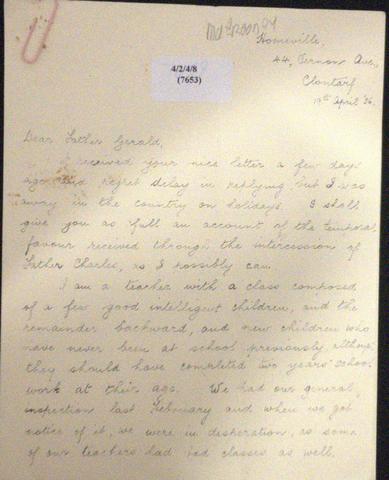 4/2/4/8
(7653)
Homeville,
44, Vernon Ave.,
Clontarf
April '36.
Dear Father Gerald,
I received your nice letter a few days
ago and regret delay in replying, but I was
away in the country on holidays. I shall
give you as full an account of the temporal
favour received through the intercession of
Father Charles, as I possibly can.
I am a teacher with a class composed
of a few good intelligent children, and the
remainder backward, and new children who
have never been at school previously although
they should have completed two years' school
work at their age. We had our general
inspection last February and when we got
notice of it, we were in desperation, as some
of our teachers had bad classes as well.